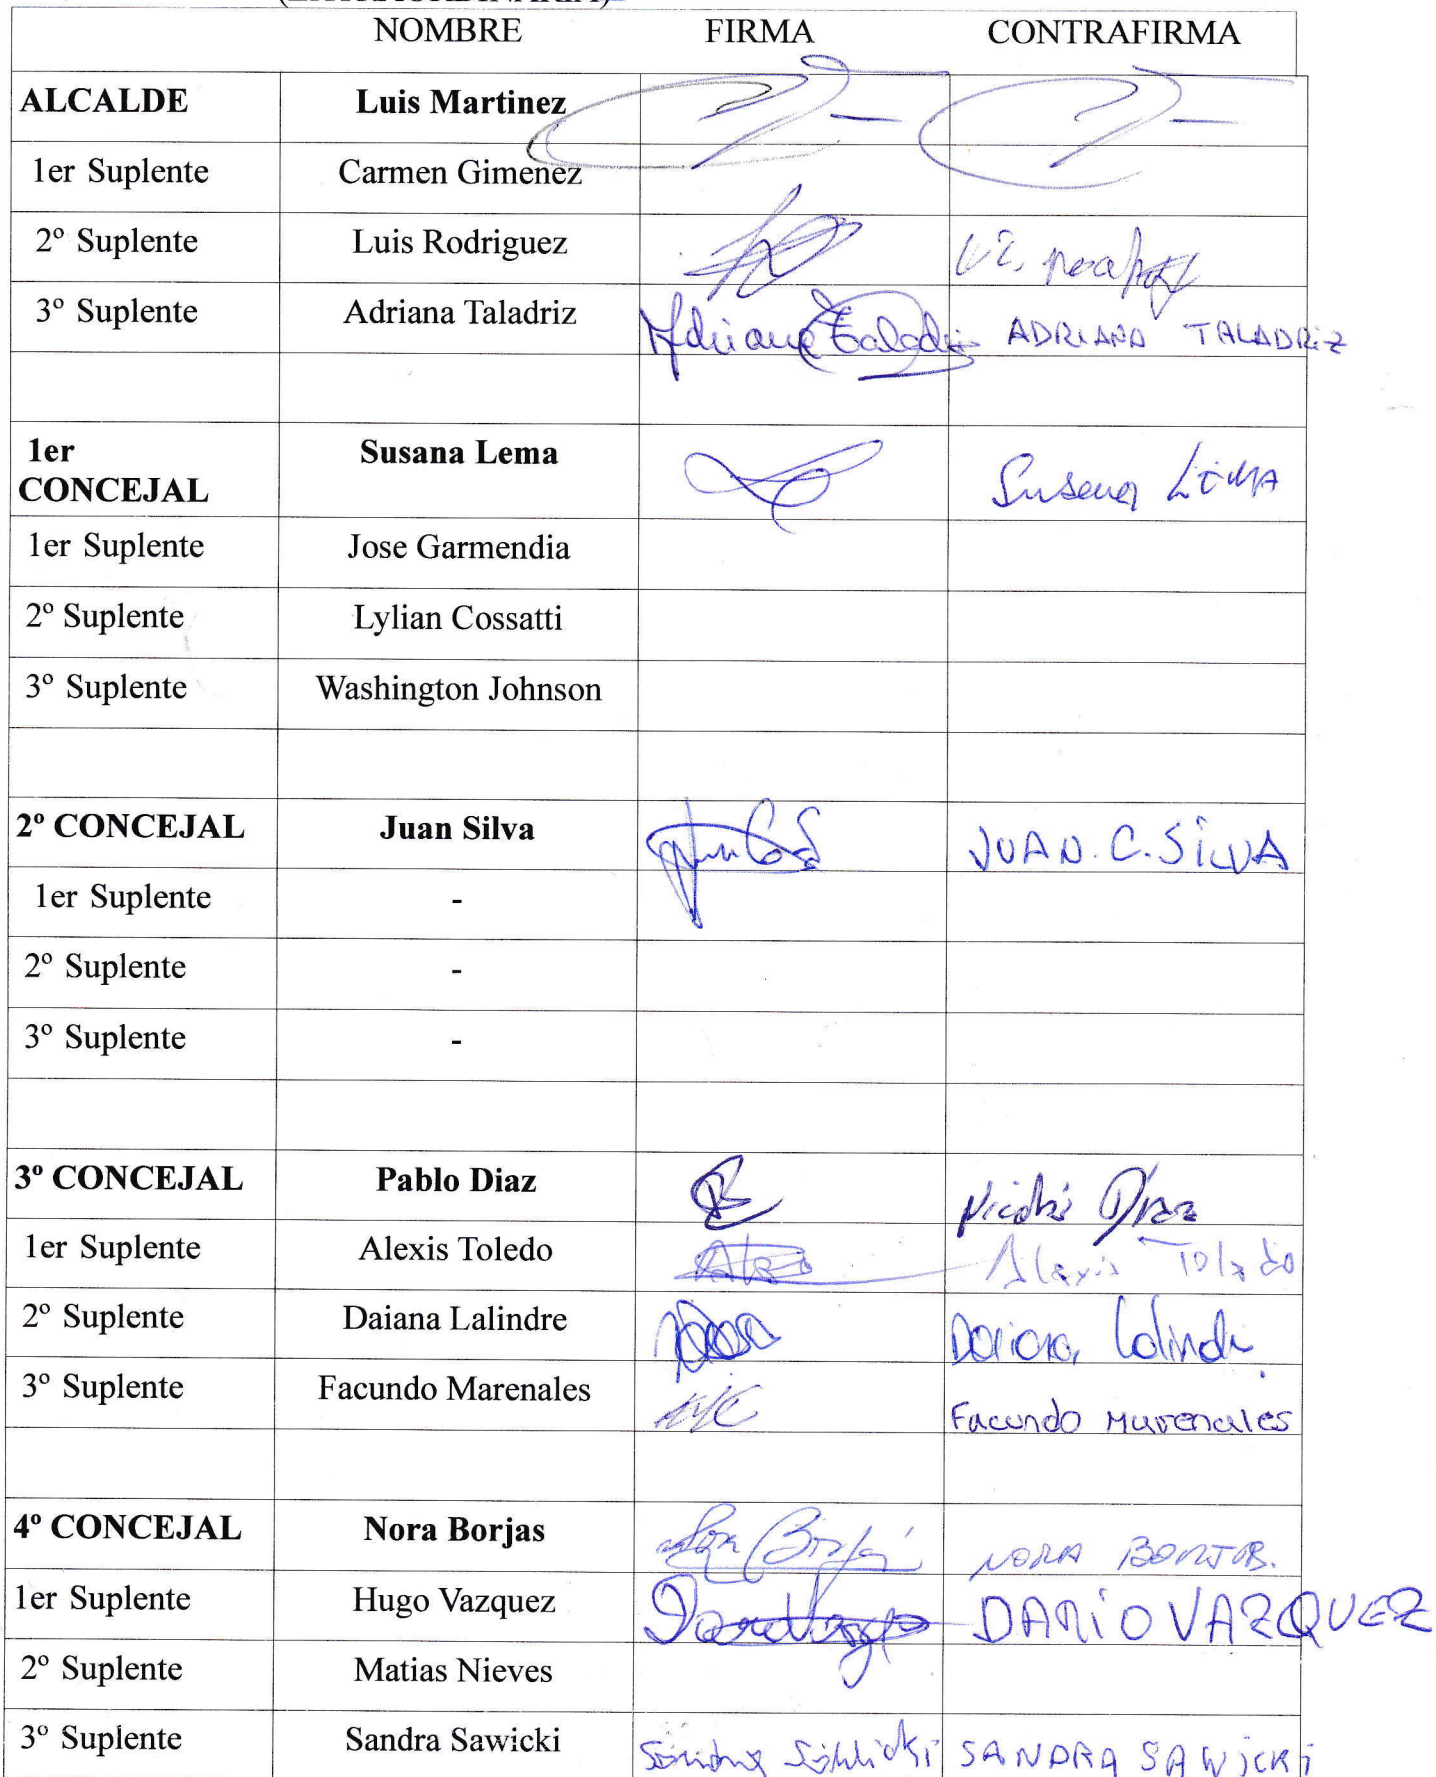 (EXTRAORDINARIA)
NOMBRE FIRMA CONTRAFIRMA
ALCALDE Luis Martinez
1er Suplente Carmen Gimenez
2º Suplente Luis Rodriguez
3º Suplente Adriana Taladriz Adriana Taladriz ADRIANA TALADRiZ
1er CONCEJAL Susana Lema Susana LEMA
1er Suplente Jose Garmendia
2º Suplente Lylian Cossatti
3º Suplente Washington Johnson
2º CONCEJAL Juan Silva JUAN. C. SiLVA
1er Suplente -
2º Suplente -
3º Suplente -
3º CONCEJAL Pablo Diaz Nicolás Díaz
1er Suplente Alexis Toledo Alexis Toledo
2º Suplente Daiana Lalindre Daiana
3º Suplente Facundo Marenales Facundo Marenales
4º CONCEJAL Nora Borjas NORA BORJAS.
1er Suplente Hugo Vazquez DARiO VAZQUEZ
2º Suplente Matias Nieves
3º Suplente Sandra Sawicki SANDRA SAWiCKi